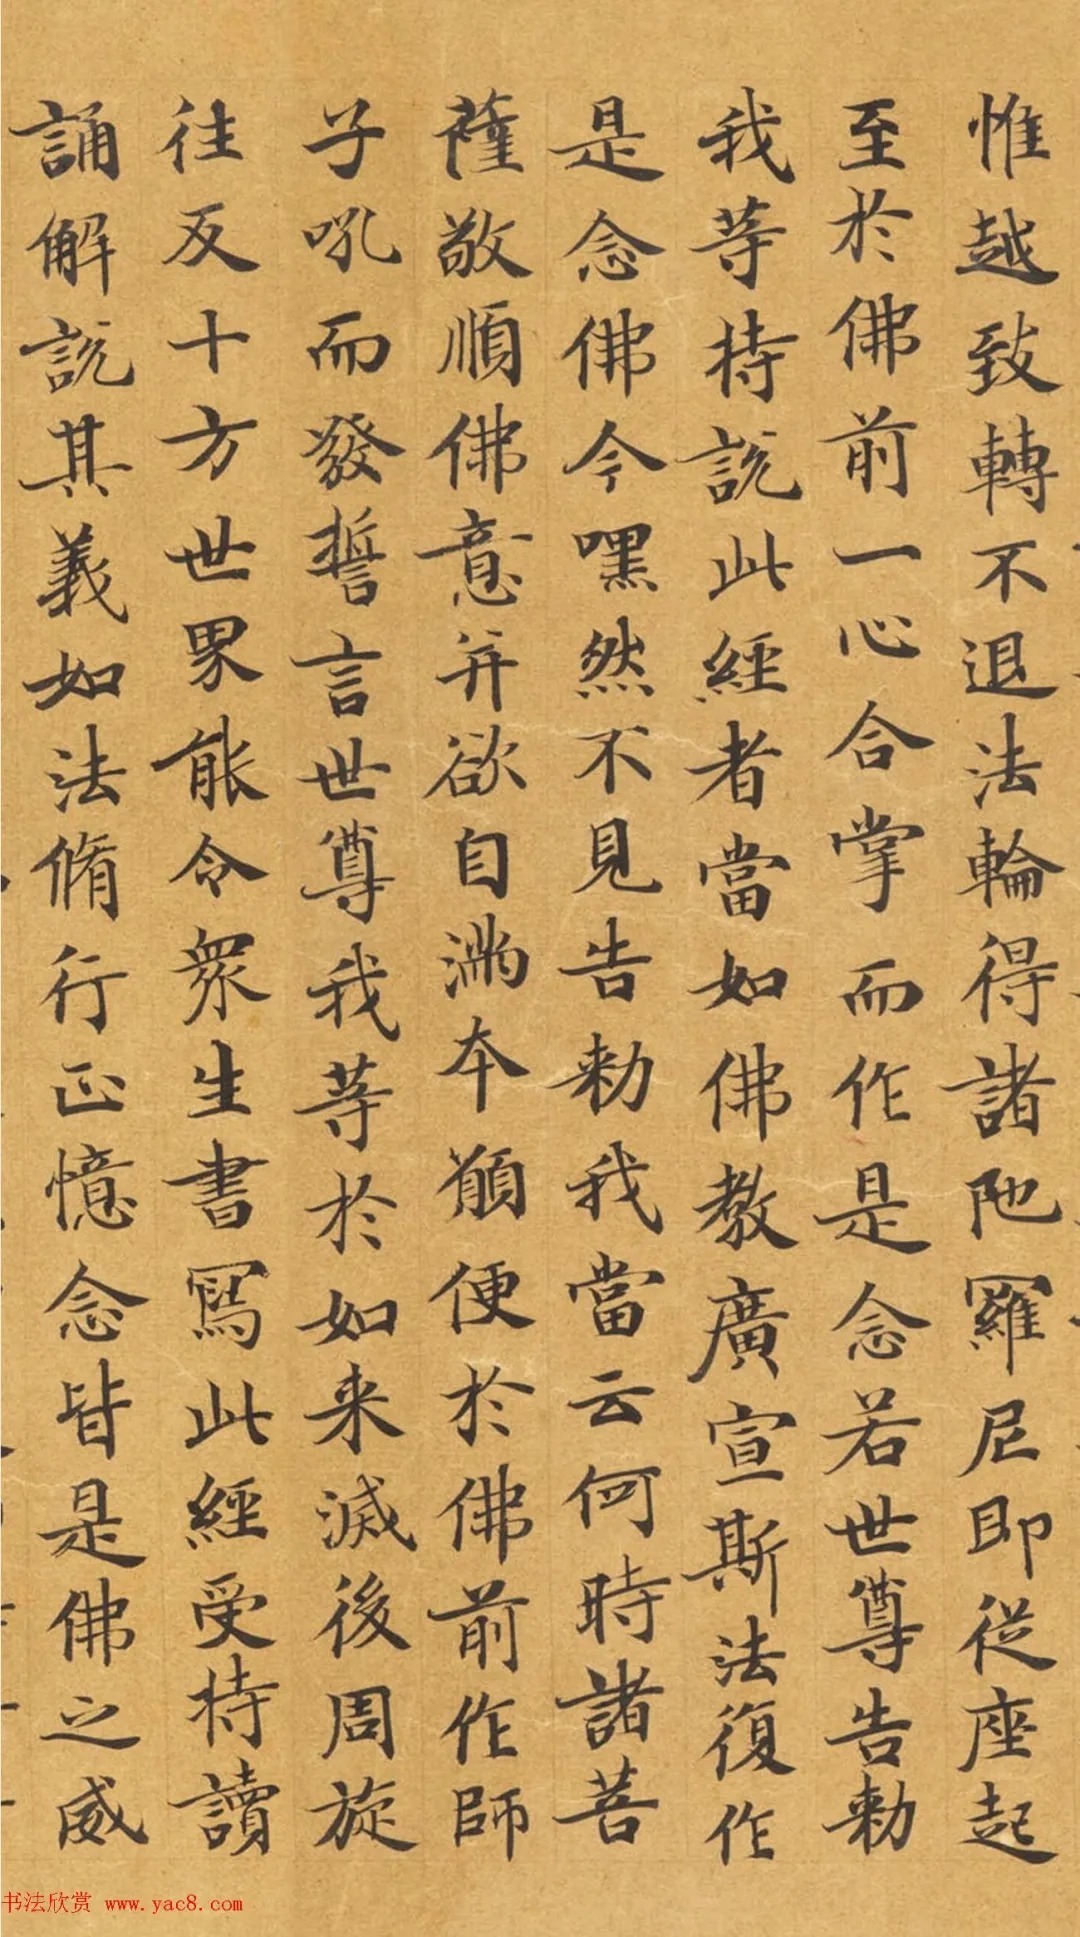 惟越致轉不退法輪得諸陀羅尼即從座起
至於佛前一心合掌而作是念若世尊告勑
我等持說此經者當如佛教廣宣斯法復作
是念佛今嘿然不見告勑我當云何時諸菩
薩敬順佛意并欲自滿本願便於佛前作師
子吼而發誓言世尊我等於如来滅後周旋
往反十方世界能令眾生書寫此經受持讀
誦解說其義如法脩行正憶念皆是佛之威
书法欣赏 www.yac8.com